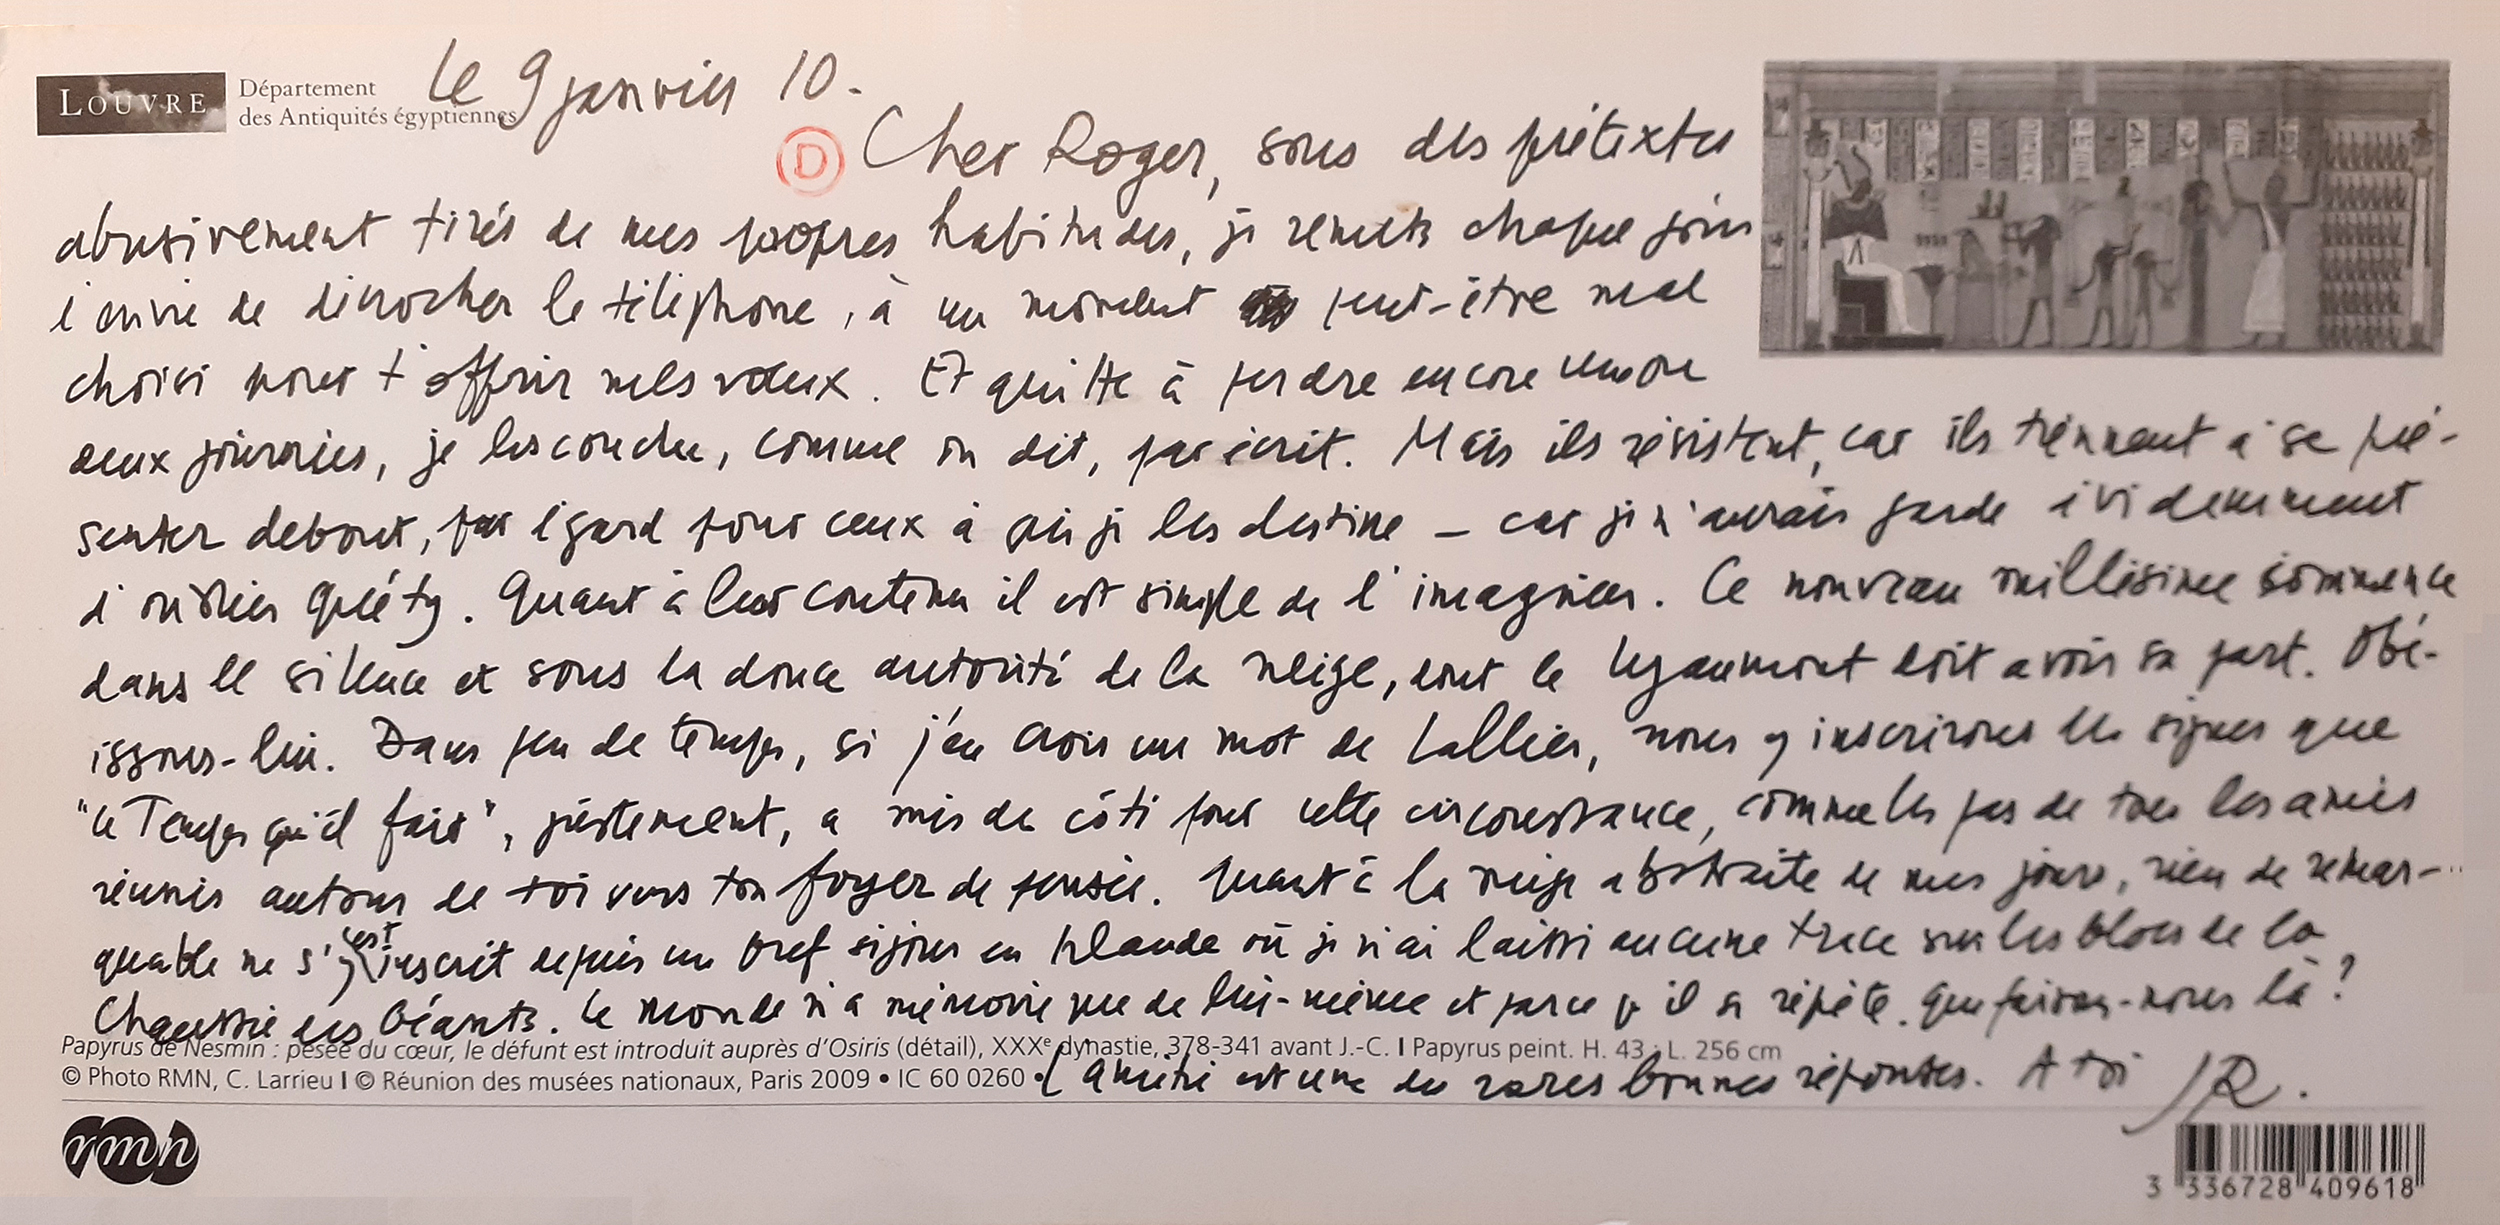 LOUVRE
Département
des Antiquités égyptiennes
Le 9 janvier 10.
D
Cher Roger, sous des prétextes
abusivement tirés de mes propres habitudes, je remets chaque jour
l'envie de décrocher le téléphone, à un moment peut-être mal
choisi pour t'offrir mes vœux. Et quitte à perdre encore une ou
deux journées, je les couche, comme on dit, par écrit. Mais ils résistent, car ils tiennent à se pré-
senter debout, par égard pour ceux à qui je les destine – car je n'aurais garde évidemment
d'oublier Quéty. Quant à leur contenu il est simple de l'imaginer. Ce nouveau millésime commence
dans le silence et sous la douce autorité de la neige, dont le doit avoir sa part. Obé-
issons-lui. Dans peu de temps, si j'en crois un mot de Lallier, nous y inscrirons les signes que
"Le Temps qu'il fait", justement, a mis de côté pour cette circonstance, comme les pas de tous les amis
réunis autour de toi vers ton foyer de pensée. Quant à la neige abstraite de mes jours, rien de remar-
quable ne s'y est inscrit depuis un bref séjour en Irlande où je n'ai laissé aucune trace sur les blocs de la
Chaussée des Géants. Le monde n'a mémoire que de lui-même et parce qu'il se répète. Que faisons-nous là ?
Papyrus de Nesmin : pesée du cœur, le défunt est introduit auprès d'Osiris (détail), XXXe dynastie, 378-341 avant J.-C. I Papyrus peint. H. 43 ; L. 256 cm
© Photo RMN, C. Larrieu I © Réunion des musées nationaux, Paris 2009 • IC 60 0260 •
L'amitié est une des rares bonnes réponses. A toi JR.
rmn
3 336728 409618